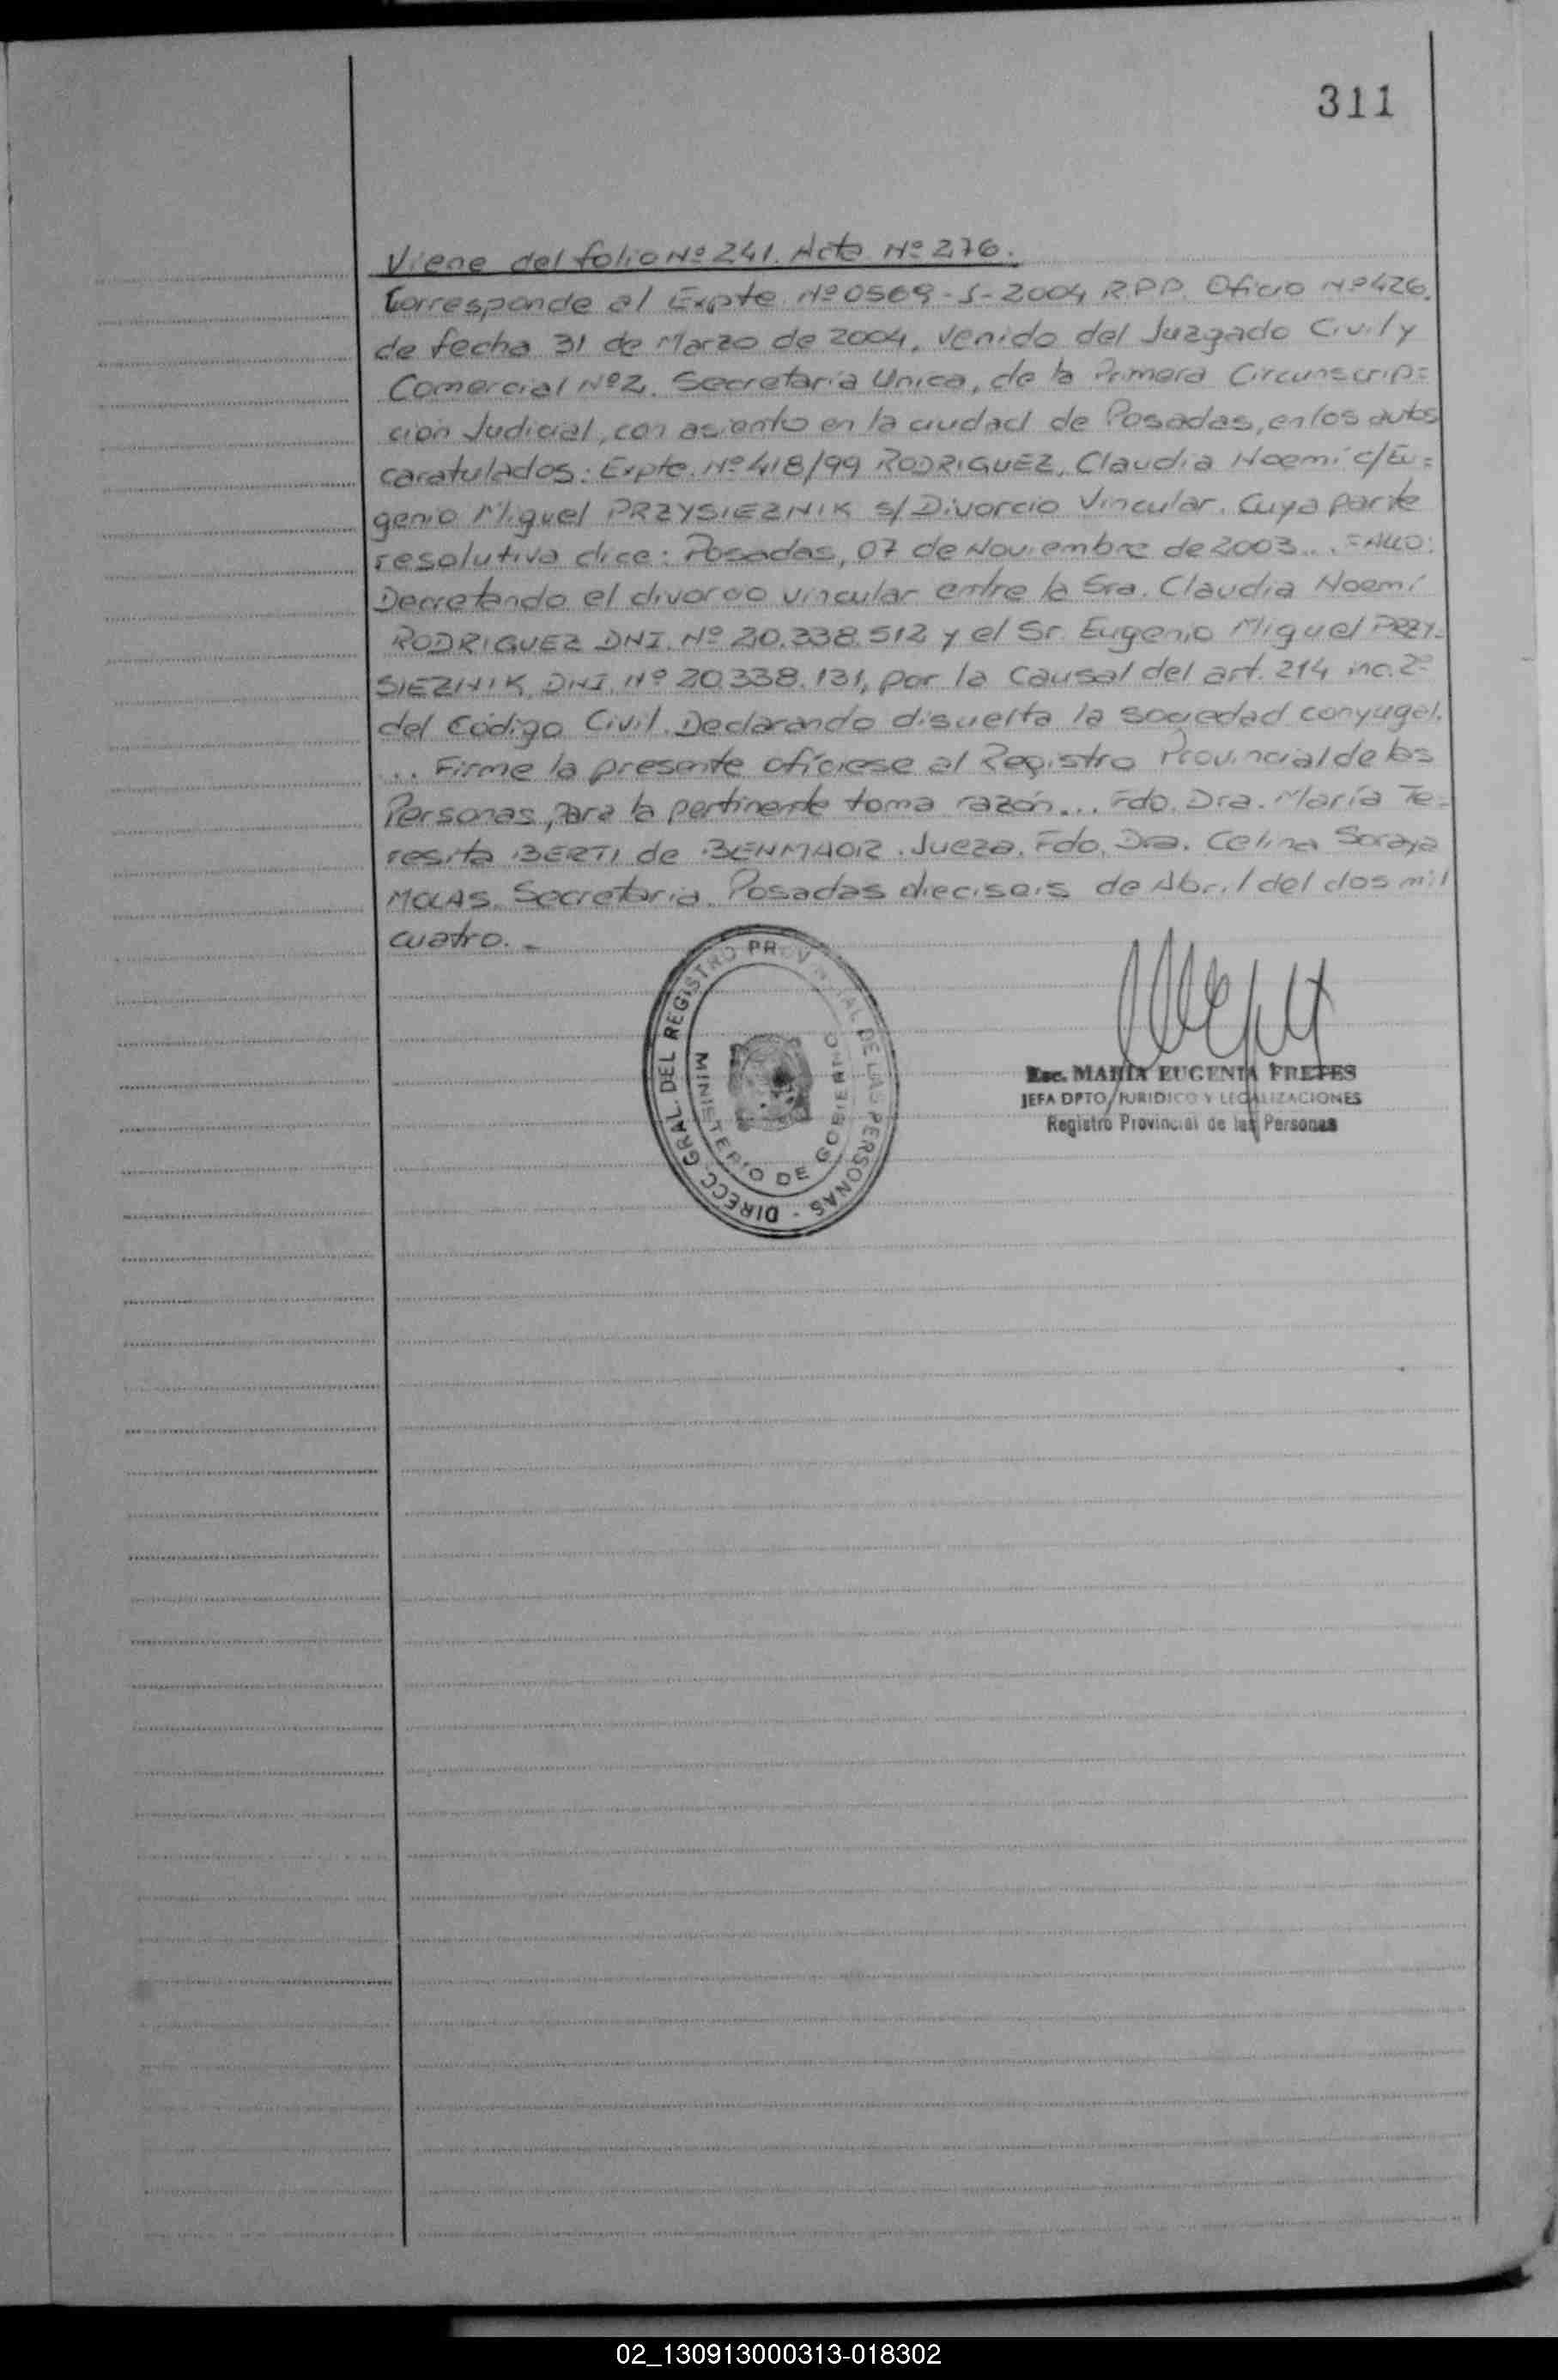 311
Viene del folio Nº 241. Acta Nº 276.
Corresponde al Expte. Nº 0569-S-2004 R.P.P. Oficio Nº 426.
de fecha 31 de Marzo de 2004, venido del Juzgado Civil y
Comercial Nº 2. Secretaría Unica, de la Primera Circunscrip=
ción Judicial, con asiento en la ciudad de Posadas, en los autos
caratulados: Expte. Nº 418/99 RODRIGUEZ, Claudia Noemí c/Eu=
genio Miguel PRZYSIEZNIK s/Divorcio Vincular. Cuya parte
resolutiva dice: Posadas, 07 de Noviembre de 2003... FALLO:
Decretando el divorcio vincular entre la Sra. Claudia Noemí
RODRIGUEZ DNI. Nº 20.338.512 y el Sr. Eugenio Miguel PRZY-
SIEZNIK, DNI. Nº 20.338.131, por la causal del art. 214 inc. 2º
del Código Civil. Declarando disuelta la sociedad conyugal.
... Firme la presente ofíciese al Registro Provincial de las
Personas, para la pertinente toma razón... Fdo. Dra. María Te=
resita BERTI de BENMAOR. Jueza. Fdo. Dra. Celina Soraya
MOLAS. Secretaria. Posadas dieciseis de Abril del dos mil
cuatro.-
DIRECC. GRAL. DEL REGISTRO PROVINCIAL DE LAS PERSONAS -
MINISTERIO DE GOBIERNO
Esc. MARIA EUGENIA FRETES
JEFA DPTO. JURIDICO Y LEGALIZACIONES
Registro Provincial de las Personas
02_130913000313-018302